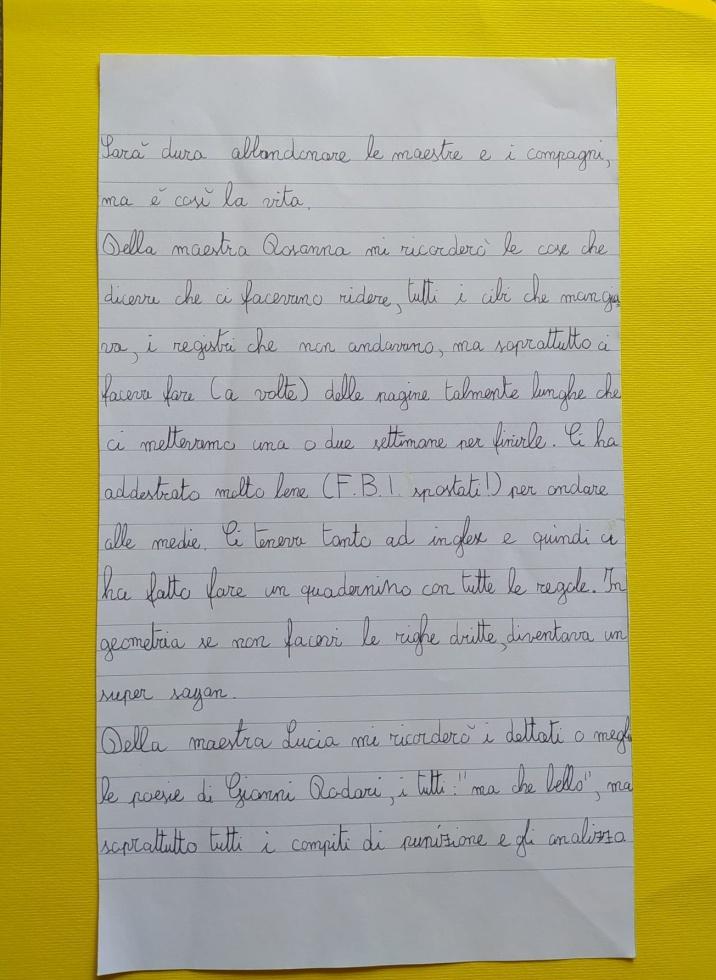 Sarà dura abbandonare le maestre e i compagni,
ma è così la vita.
Della maestra Rosanna mi ricorderò le cose che
diceva che ci facevano ridere, tutti i cibi che mangia
va, i registri che non andavano, ma soprattutto ci
faceva fare (a volte) delle pagine talmente lunghe che
ci mettevamo una o due settimane per finirle. Ci ha
addestrato molto bene (F.B.I. spostati!) per andare
alle medie. Ci teneva tanto ad inglese e quindi ci
ha fatto fare un quadernino con tutte le regole. In
geometria se non facevi le righe dritte, diventava un
super sayan.
Della maestra Lucia mi ricorderò i dettati o megl
le poesie di Gianni Rodari, i tutti: "ma che bello", ma
soprattutto tutti i compiti di punizione e gli analizza